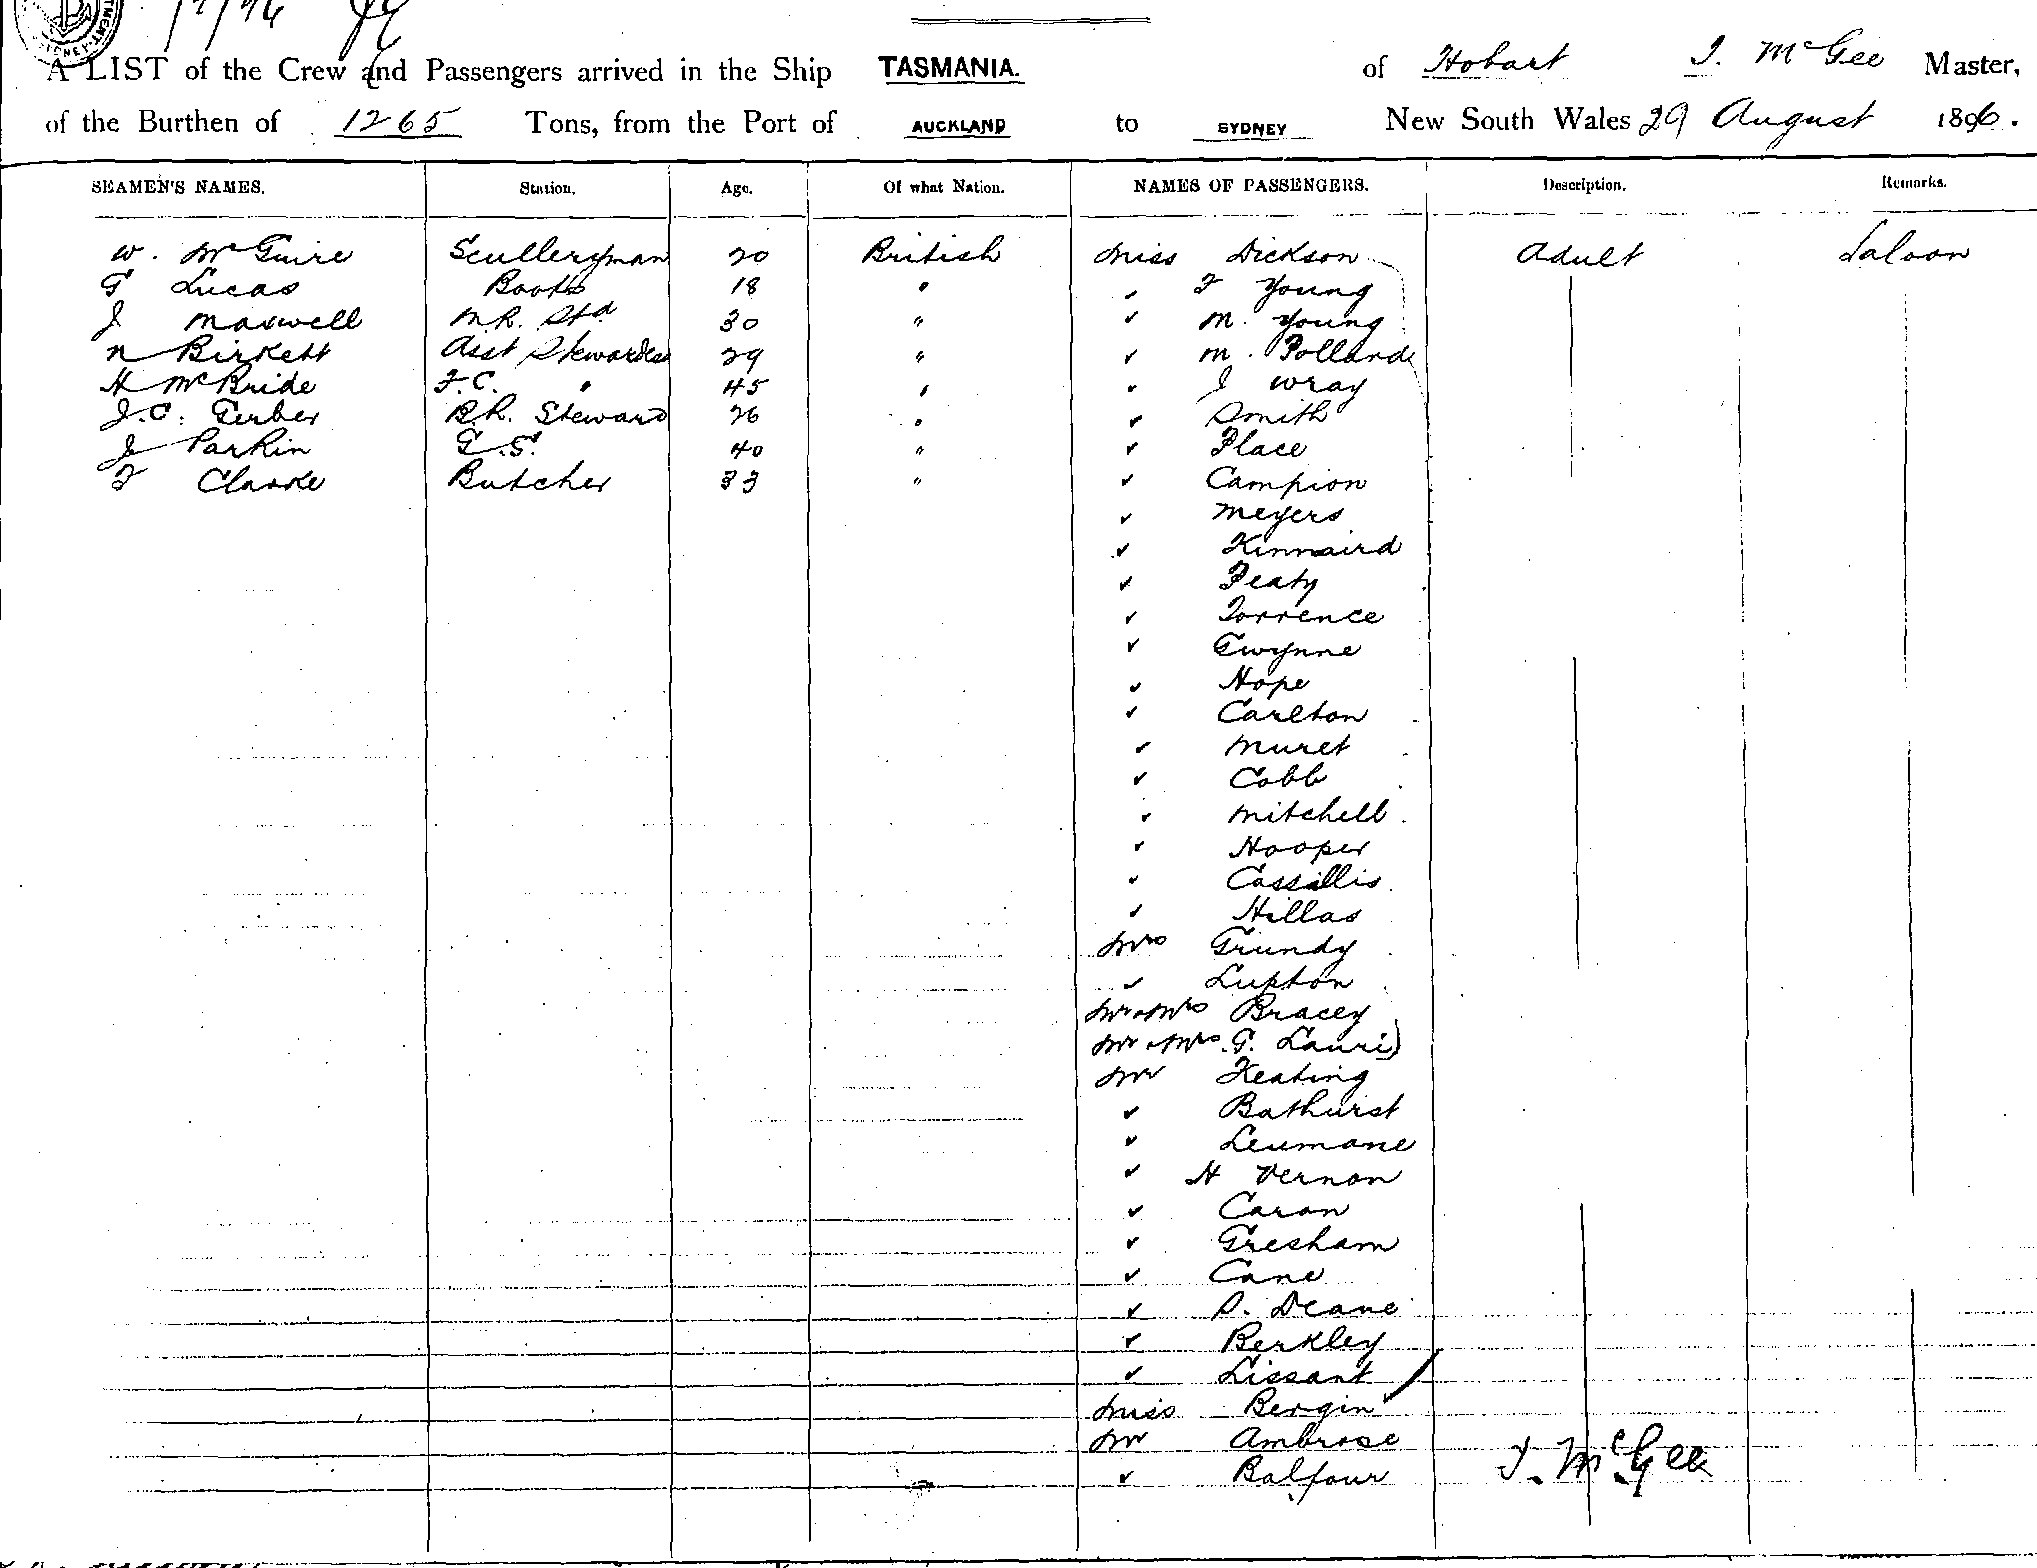 A LIST of the Crew and Passengers arrived in the Ship TASMANIA. of Hobart T. McGee Master,
of the Burthen of 1265 Tons, from the Port of AUCKLAND to SYDNEY New South Wales 29 August 1896.
SEAMEN'S NAMES. Station. Age. Of what Nation. NAMES OF PASSENGERS. Description. Remarks.
W. McGuire Sculleryman 20 British Miss Dickson Adult Saloon
G Lucas Boots 18 " " F Young
J Maxwell M.R. Std 30 " " M. Young
N Birkett Asst Stewardess 29 " " M. Pollard
H McBride F.C. " 45 " " J Wray
J.C. Gerber B.R. Steward 26 " " Smith
J Parkin G.S. 40 " " Place
F Clarke Butcher 33 " " Campion
" Meyers
" Kinnaird
" Peaty
" Torrence
" Gwynne
" Hope
" Carlton
" Muret
" Cobb
" Mitchell
" Hooper
" Cassillis
" Hillas
Mrs Grundy
" Lupton
Mr & Mrs Bracey
Mr & Mrs G. Lauri
Mr Keating
" Bathurst
" Leumane
" H Vernon
" Caron
" Gresham
" Cane
" P. Deane
" Berkley
" Lissant
Miss Bergin
Mr Ambrose
" Balfour
T. McGee